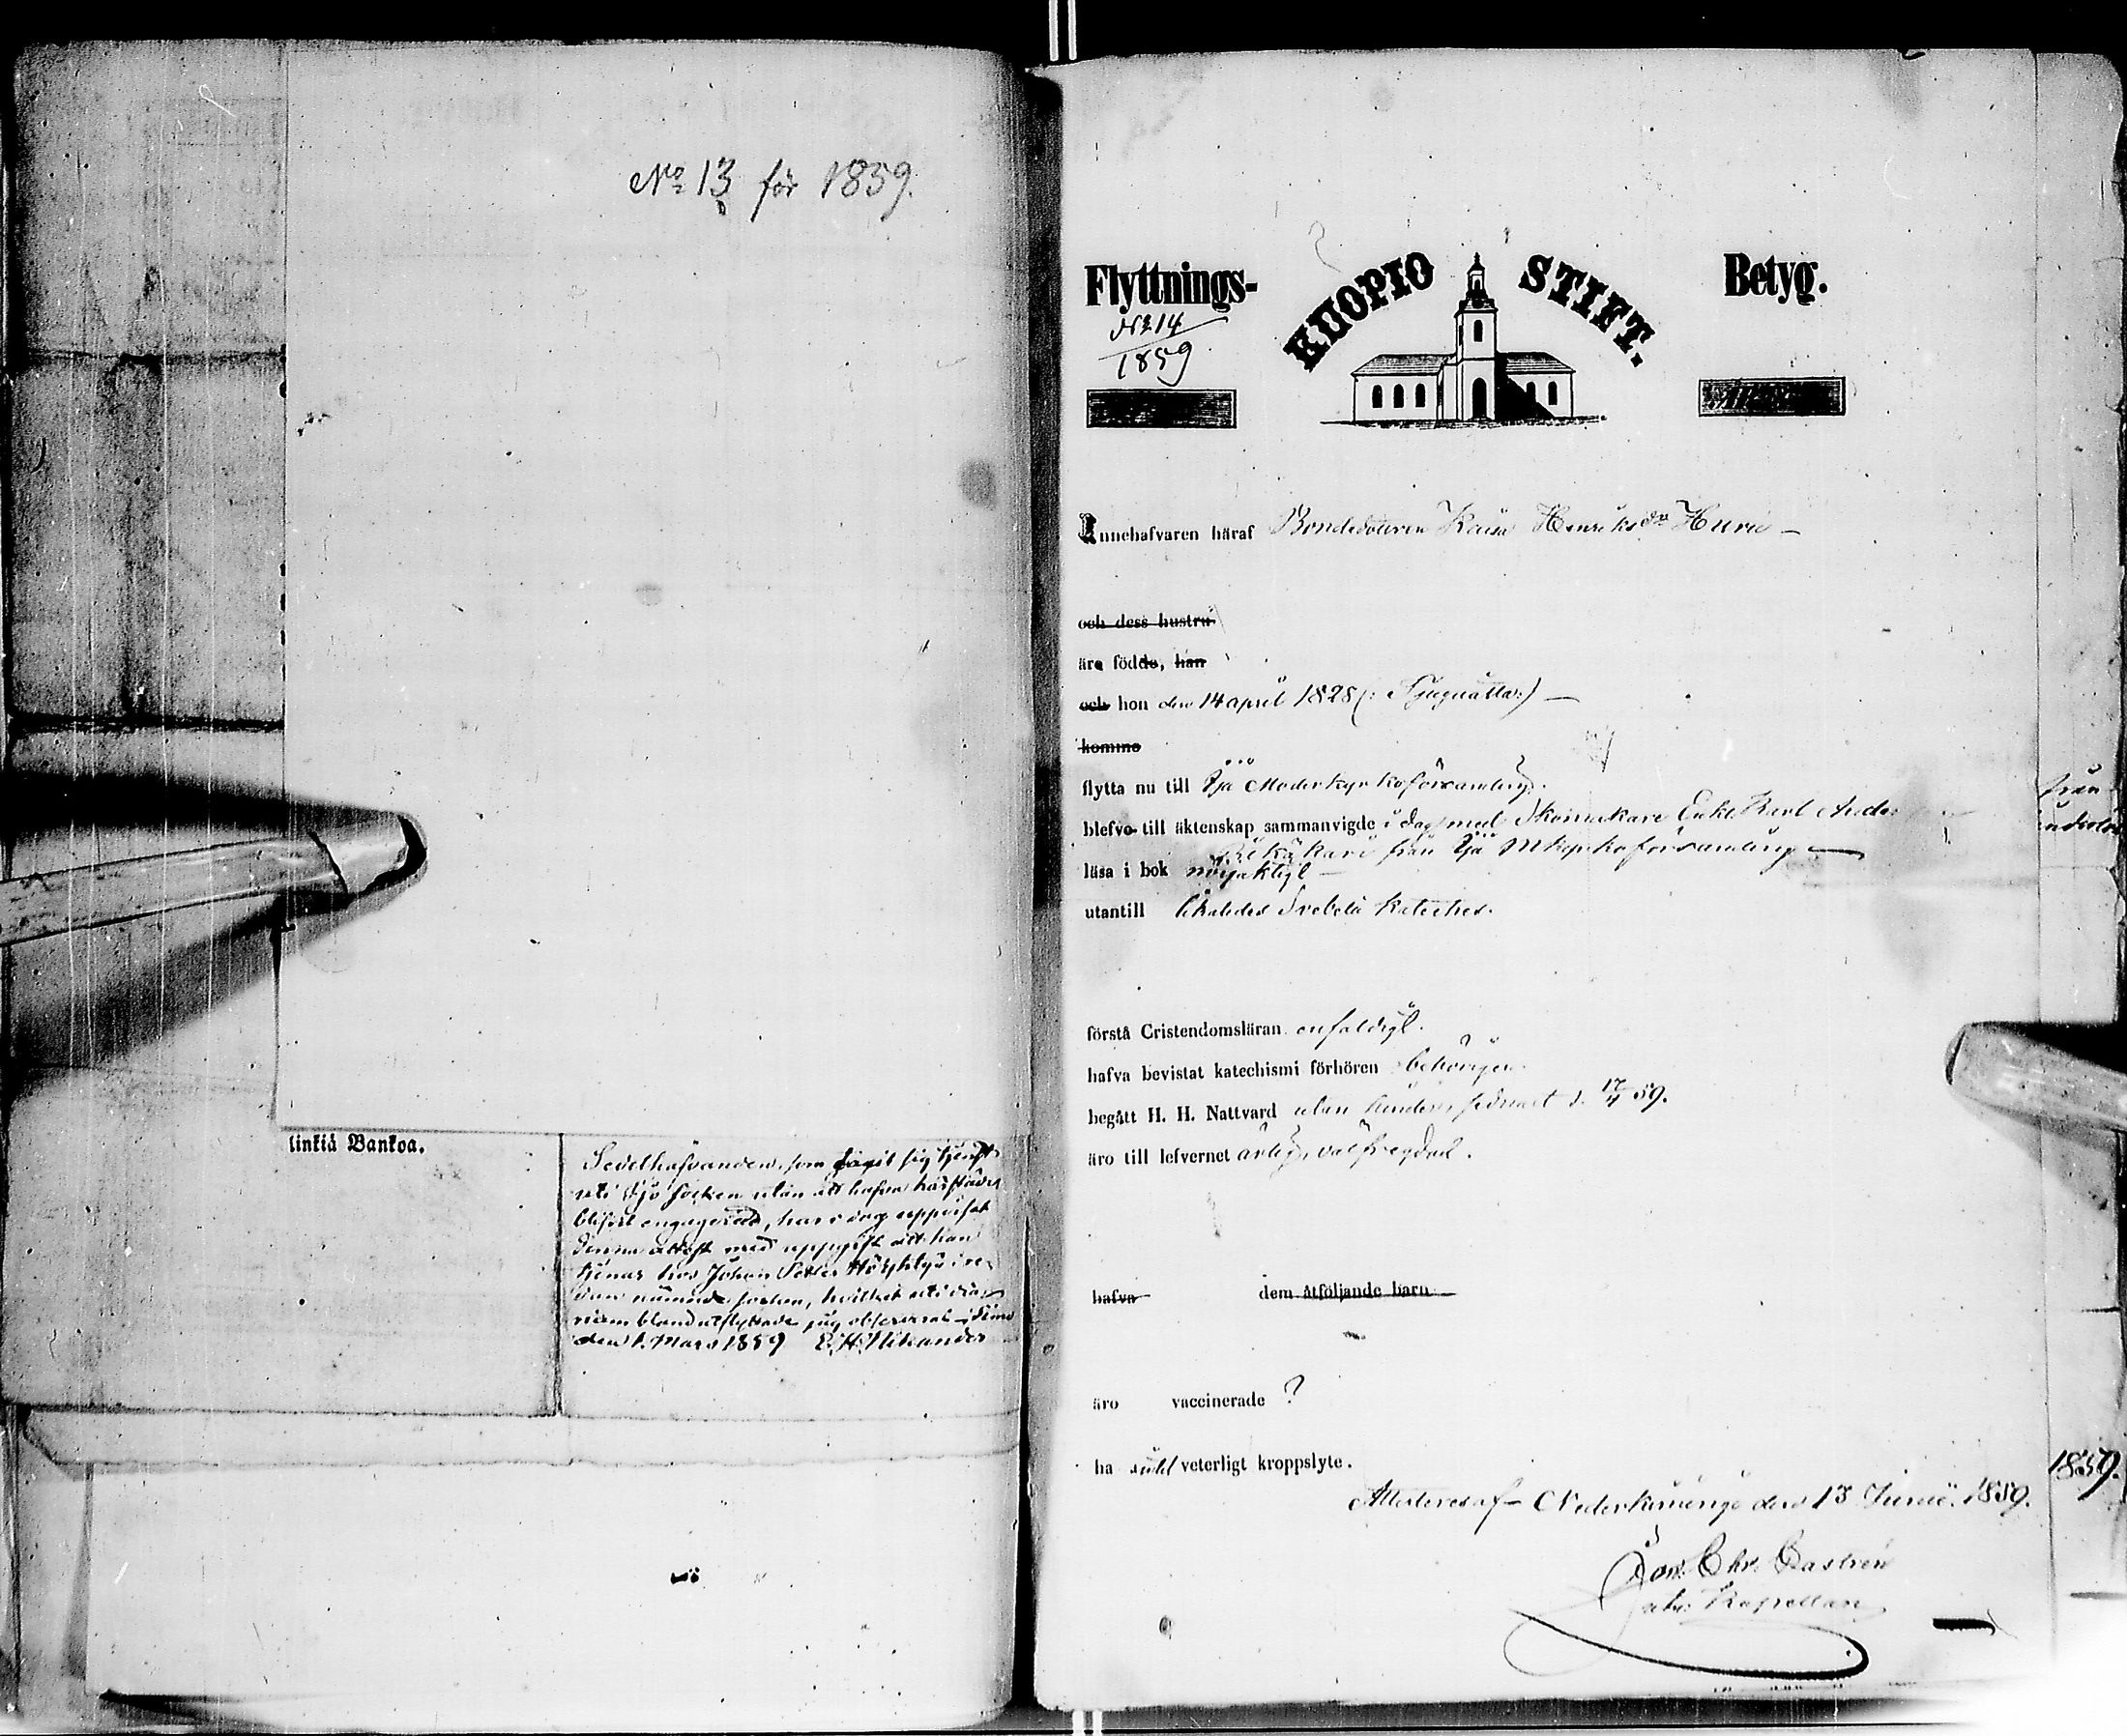 No 13 för 1859.
linkiä Bankoa.
Sedelhafvanden, som sig tjenst
uti Ijo socken utan att hafva härstädes
blifvit engagerad, har i dag uppvisat
denna attest med uppgift att han
tjenar hos Johan Petter i re-
dan nämnde socken, hvilket uti dia-
rium bland utflyttade jag observerat. Simo
den 1. Mars 1859 E. H. Nikander
Flyttnings- KUOPIO STIFT. Betyg.
No 14
1859
Innehafvaren häraf Bondedottren Kaisa Henriksdr Huru
och dess hustru
äro födde, han
och hon den 14 april 1828 (: Tjuguåtta:)
komne
flytta nu till Ijo Moderkyrkoförsamling.
från
blefvo till äktenskap sammanvigde i dag med Skomakare Enkl. Karl Anders
från Ijo Mkyrkoförsamling
läsa i bok nöjaktigt
utantill likaledes Svebelii Kateches.
förstå Cristendomsläran enfaldigt.
hafva bevistat katechismi förhören behörigen.
begått H. H. Nattvard utan hinder, sednast d. 17/4 59.
äro till lefvernet ärlig, välfregdad.
hafva dem åtföljande barn
äro vaccinerade ?
ha intet veterligt kroppslyte.
1859.
Attesteras af Nederkiminge den 13 Junii 1859.
Jon. Chr. Castrén
Kapellan